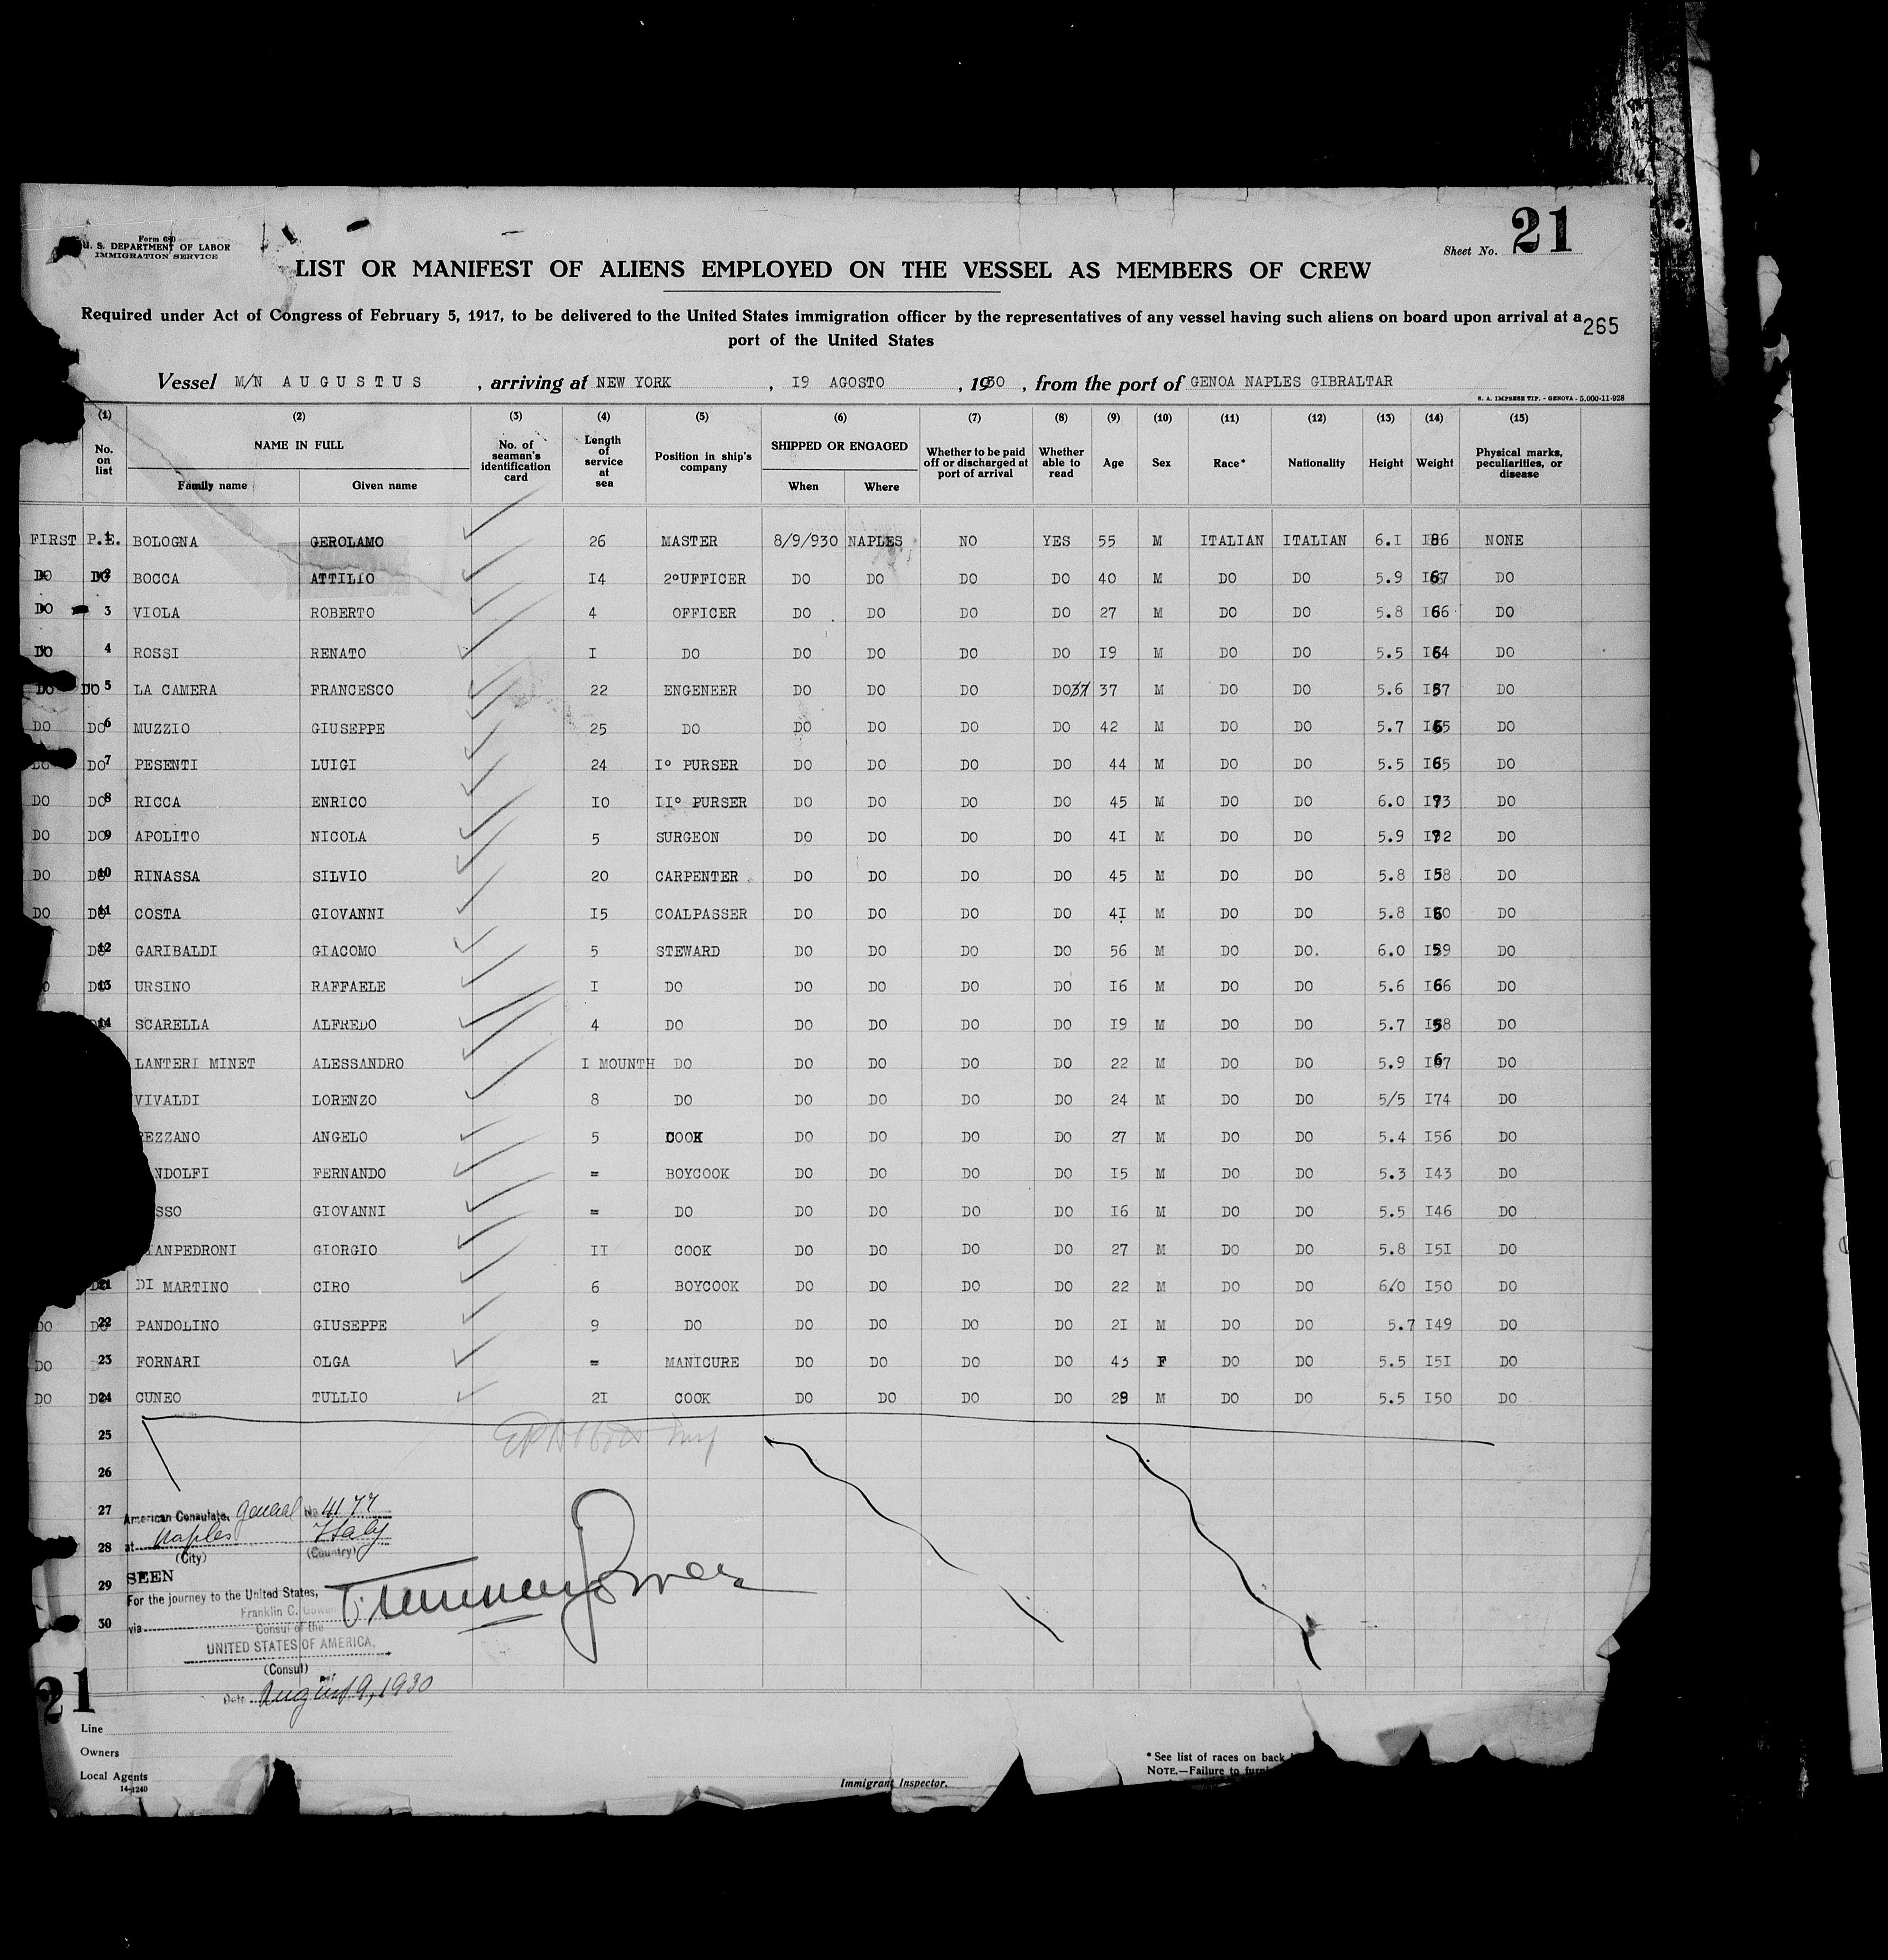 Form 680
U. S. DEPARTMENT OF LABOR
IMMIGRATION SERVICE
Sheet No. 21
LIST OR MANIFEST OF ALIENS EMPLOYED ON THE VESSEL AS MEMBERS OF CREW
Required under Act of Congress of February 5, 1917, to be delivered to the United States immigration officer by the representatives of any vessel having such aliens on board upon arrival at a
port of the United States
265
Vessel M/N AUGUSTUS , arriving at NEW YORK , 19 AGOSTO , 1930 , from the port of GENOA NAPLES GIBRALTAR
S. A. IMPRESE TIP. - GENOVA - 5.000-11-928
(1) (2) (3) (4) (5) (6) (7) (8) (9) (10) (11) (12) (13) (14) (15)
No. on list NAME IN FULL Family name Given name No. of seaman's identification card Length of service at sea Position in ship's company SHIPPED OR ENGAGED When Where Whether to be paid off or discharged at port of arrival Whether able to read Age Sex Race* Nationality Height Weight Physical marks, peculiarities, or disease
FIRST P.E. 1 BOLOGNA GEROLAMO 26 MASTER 8/9/930 NAPLES NO YES 55 M ITALIAN ITALIAN 6.I I86 NONE
DO DO 2 BOCCA ATTILIO I4 2°UFFICER DO DO DO DO 40 M DO DO 5.9 I67 DO
DO 3 VIOLA ROBERTO 4 OFFICER DO DO DO DO 27 M DO DO 5.8 I66 DO
DO 4 ROSSI RENATO I DO DO DO DO DO I9 M DO DO 5.5 I64 DO
DO DO 5 LA CAMERA FRANCESCO 22 ENGENEER DO DO DO DO 37 37 M DO DO 5.6 I57 DO
DO DO 6 MUZZIO GIUSEPPE 25 DO DO DO DO DO 42 M DO DO 5.7 I65 DO
DO DO 7 PESENTI LUIGI 24 I° PURSER DO DO DO DO 44 M DO DO 5.5 I65 DO
DO DO 8 RICCA ENRICO IO II° PURSER DO DO DO DO 45 M DO DO 6.0 I73 DO
DO DO 9 APOLITO NICOLA 5 SURGEON DO DO DO DO 4I M DO DO 5.9 I72 DO
DO DO 10 RINASSA SILVIO 20 CARPENTER DO DO DO DO 45 M DO DO 5.8 I58 DO
DO DO 11 COSTA GIOVANNI I5 COALPASSER DO DO DO DO 4I M DO DO 5.8 I60 DO
DO 12 GARIBALDI GIACOMO 5 STEWARD DO DO DO DO 56 M DO DO. 6.0 I59 DO
DO 13 URSINO RAFFAELE I DO DO DO DO DO I6 M DO DO 5.6 I66 DO
14 SCARELLA ALFREDO 4 DO DO DO DO DO I9 M DO DO 5.7 I58 DO
LANTERI MINET ALESSANDRO I MOUNTH DO DO DO DO DO 22 M DO DO 5.9 I67 DO
VIVALDI LORENZO 8 DO DO DO DO DO 24 M DO DO 5/5 I74 DO
REZZANO ANGELO 5 COOK DO DO DO DO 27 M DO DO 5.4 I56 DO
NDOLFI FERNANDO = BOYCOOK DO DO DO DO I5 M DO DO 5.3 I43 DO
SSO GIOVANNI = DO DO DO DO DO I6 M DO DO 5.5 I46 DO
IANPEDRONI GIORGIO II COOK DO DO DO DO 27 M DO DO 5.8 I5I DO
21 DI MARTINO CIRO 6 BOYCOOK DO DO DO DO 22 M DO DO 6/0 I50 DO
DO DO 22 PANDOLINO GIUSEPPE 9 DO DO DO DO DO 2I M DO DO 5.7 I49 DO
DO 23 FORNARI OLGA = MANICURE DO DO DO DO 43 F DO DO 5.5 I5I DO
DO DO 24 CUNEO TULLIO 2I COOK DO DO DO DO 28 M DO DO 5.5 I50 DO
25
26
27 American Consulate General No. 4177
28 at Naples Italy
(City) (Country)
SEEN
29 For the journey to the United States,
Franklin C. Gowen
30 via Consul of the
UNITED STATES OF AMERICA.
(Consul)
Date August 9, 1930
21
Line
Owners
Local Agents
14-1240
Immigrant Inspector.
* See list of races on back
NOTE.—Failure to